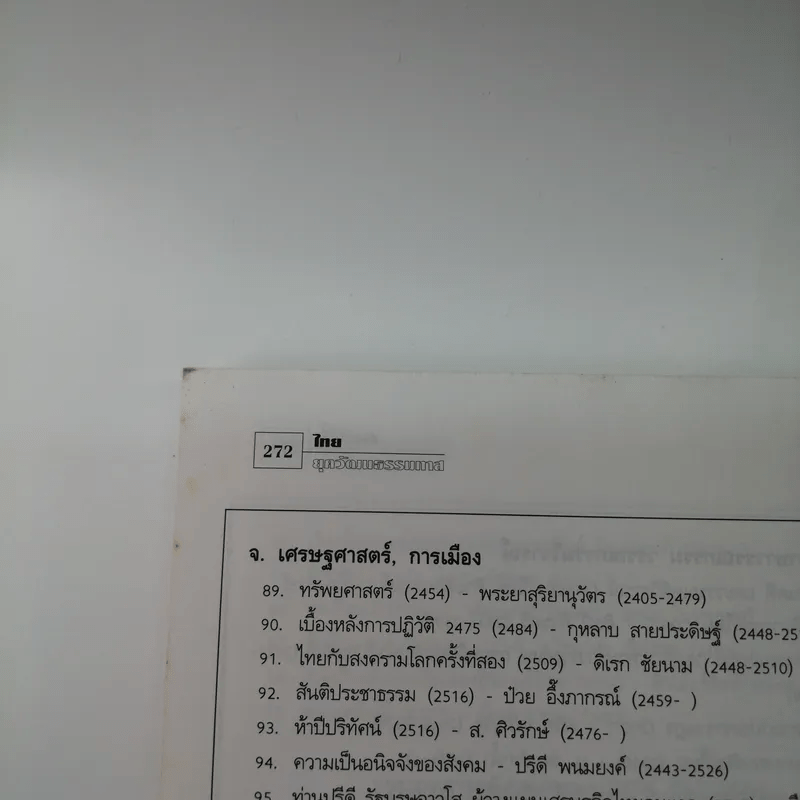 272
ไทย
ยุควัฒนธรรมทาส
จ. เศรษฐศาสตร์, การเมือง
89. ทรัพยศาสตร์ (2454) - พระยาสุริยานุวัตร (2405-2479)
90. เบื้องหลังการปฏิวัติ 2475 (2484) - กุหลาบ สายประดิษฐ์ (2448-251
91. ไทยกับสงครามโลกครั้งที่สอง (2509) - ดิเรก ชัยนาม (2448-2510)
92. สันติประชาธรรม (2516) - ป๋วย อึ๊งภากรณ์ (2459- )
93. ห้าปีปริทัศน์ (2516) - ส. ศิวรักษ์ (2476- )
94. ความเป็นอนิจจังของสังคม - ปรีดี พนมยงค์ (2443-2526)
95. ท่านปรีดี รัฐบุรุษอาวุโส